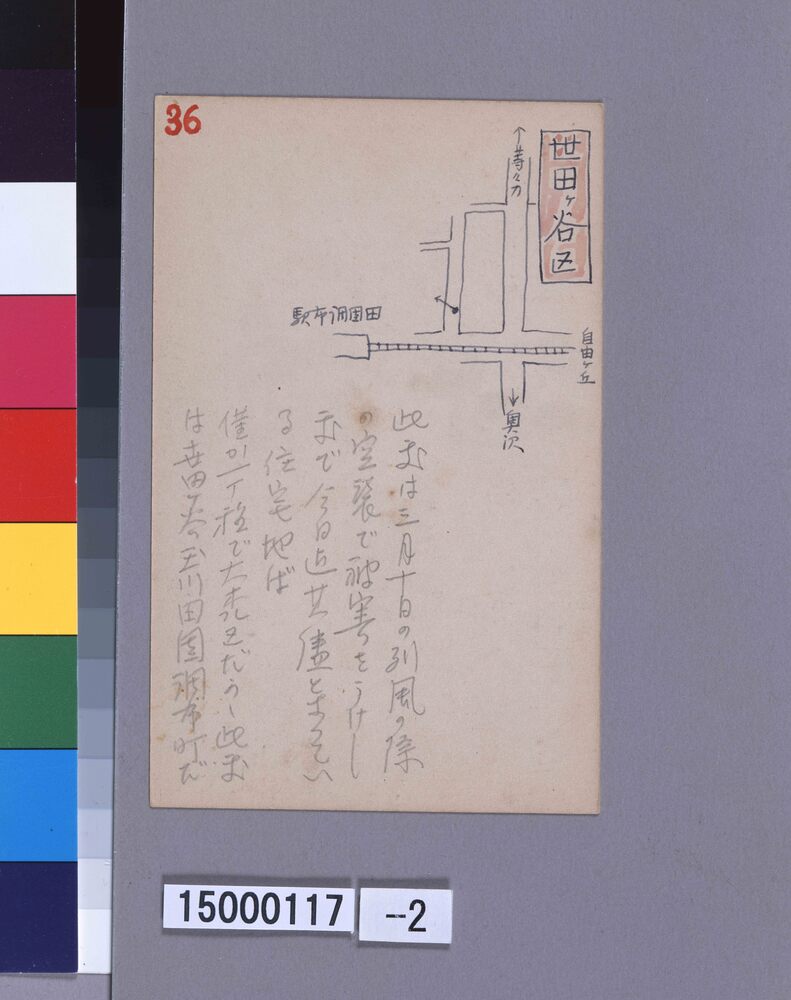 36
世田ヶ谷区
↑等々力
自由ヶ丘
駅布調園田
↓奥沢
此家は三月十日の列風の際
の空襲で被害をうけし
家で今日迄其儘とまつてい
る住宅地ば
僅か一丁程で大森区だらう此家
は世田ヶ谷の玉川田園調布町だ
15000117
--2